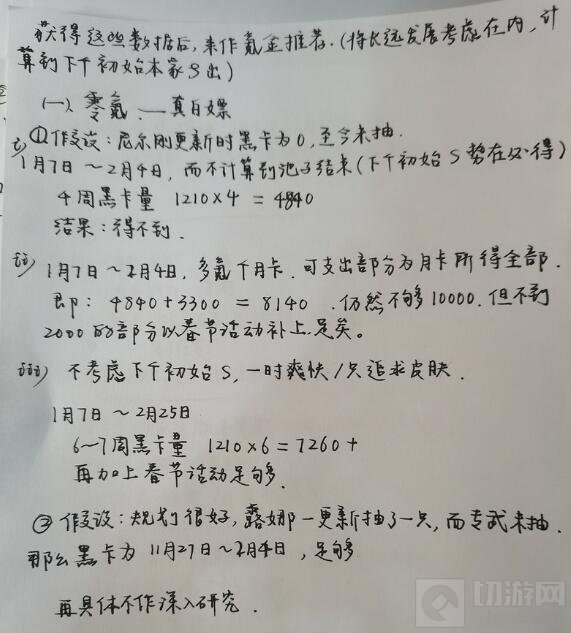 获得这些数据后,来作氪金推荐.(将长远发展考虑在内,计
算到下个初始本家S出)
(一)零氪——真白嫖
i) ①假设:尼尔刚更新时黑卡为0,至今未抽.
1月7日~2月4日,而不计算到池子结束(下个初始S势在必得)
4周黑卡量 1210×4=4840
结果:得不到.
ii) 1月7日~2月4日,多氪个月卡.可支出部分为月卡所得全部.
即:4840+3300=8140.仍然不够10000.但不到
2000的部分以春节活动补上足矣。
iii) 不考虑下个初始S,一时爽快/只追求皮肤.
1月7日~2月25日
6~7周黑卡量 1210×6=7260+
再加上春节活动足够.
②假设:规划很好,露娜一更新抽了一只,而专武未抽.
那么黑卡为11月27日~2月4日,足够.
再具体不作深入研究.
切游网